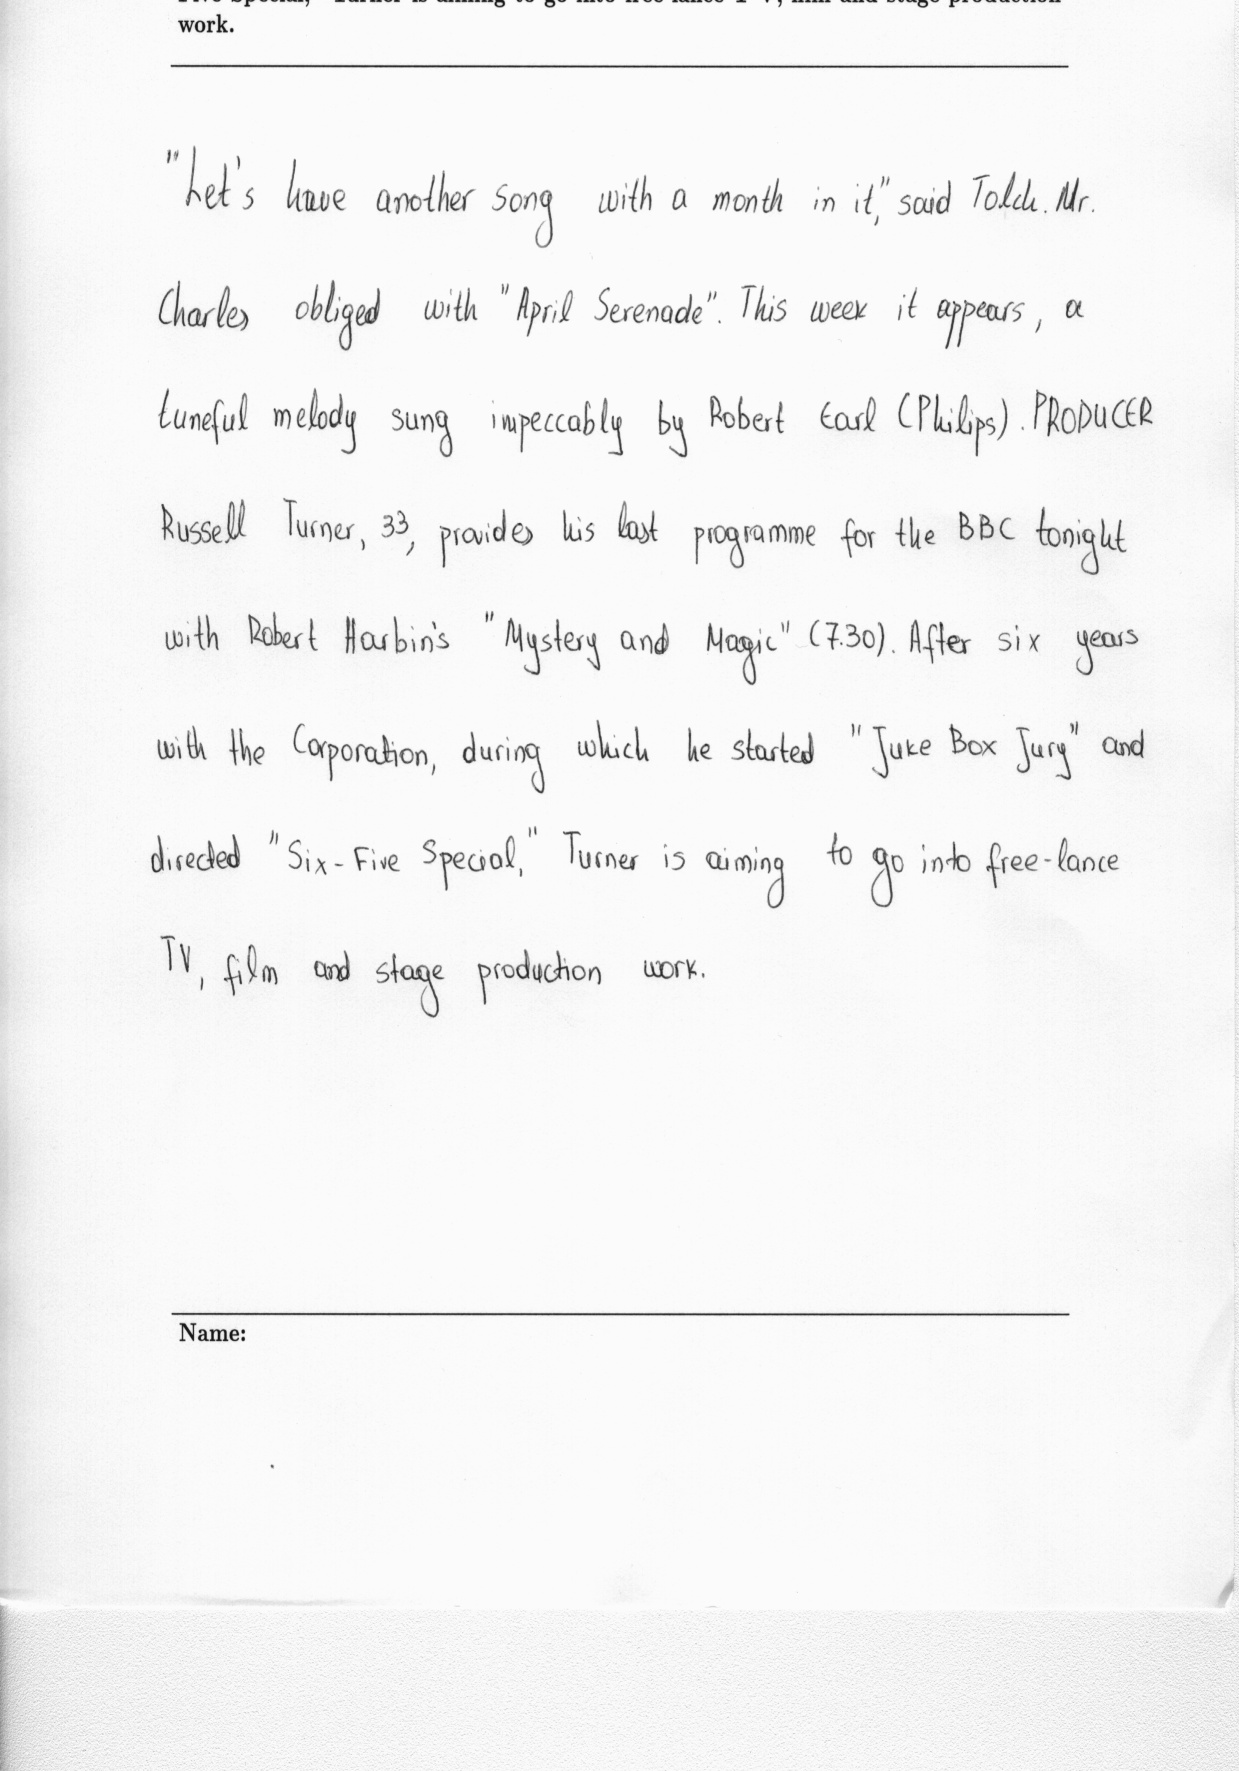 Five Special," Turner is aiming to go into free-lance T V, film and stage production
work.
"Let's have another song with a month in it," said Tolch. Mr.
Charles obliged with "April Serenade". This week it appears, a
tuneful melody sung impeccably by Robert Earl (Philips). PRODUCER
Russell Turner, 33, provides his last programme for the BBC tonight
with Robert Harbin's "Mystery and Magic" (7.30). After six years
with the Corporation, during which he started "Juke Box Jury" and
directed "Six-Five Special," Turner is aiming to go into free-lance
TV, film and stage production work.
Name: